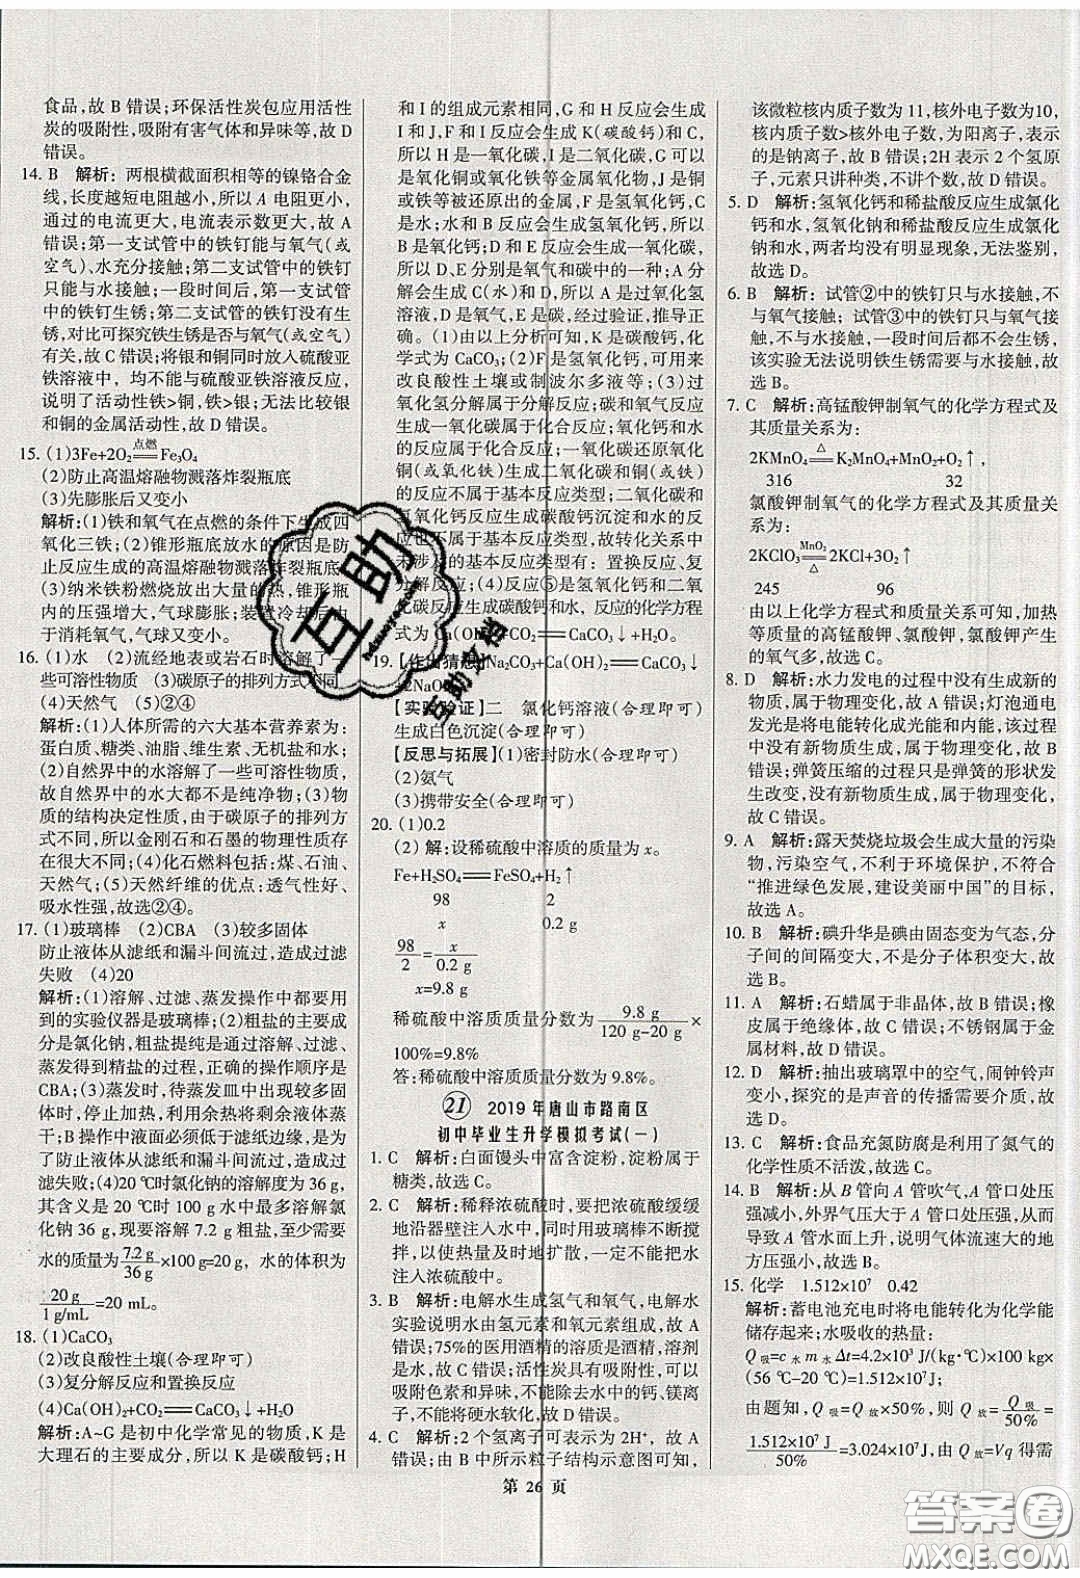 食品,故 B 错误;环保活性炭包应用活性
炭的吸附性,吸附有害气体和异味等,故 D
错误。
14. B 解析:两根横截面积相等的镍铬合金
线,长度越短电阻越小,所以 A 电阻更小,
通过的电流更大,电流表示数更大,故 A
错误;第一支试管中的铁钉能与氧气(或
空气)、水充分接触;第二支试管中的铁钉
只能与水接触;一段时间后,第一支试管
中的铁钉生锈;第二支试管的铁钉没有生
锈,对比可探究铁生锈是否与氧气(或空气)
有关,故 C 错误;将银和铜同时放入硫酸亚
铁溶液中,均不能与硫酸亚铁溶液反应,
说明了活动性铁>铜,铁>银;无法比较银
和铜的金属活动性,故 D 错误。
15. (1)3Fe+2O₂ 点燃 Fe₃O₄
(2)防止高温熔融物溅落炸裂瓶底
(3)先膨胀后又变小
解析:(1)铁和氧气在点燃的条件下生成四
氧化三铁;(2)锥形瓶底放水的原因是防
止反应生成的高温熔融物溅落炸裂瓶底;
(3)纳米铁粉燃烧放出大量的热,锥形瓶
内的压强增大,气球膨胀;装置冷却后,由
于消耗氧气,气球又变小。
16. (1)水 (2)流经地表或岩石时溶解了一
些可溶性物质 (3)碳原子的排列方式不同
(4)天然气 (5)②④
解析:(1)人体所需的六大基本营养素为:
蛋白质、糖类、油脂、维生素、无机盐和水;
(2)自然界中的水溶解了一些可溶性物质,
故自然界中的水大都不是纯净物;(3)物
质的结构决定性质,由于碳原子的排列方
式不同,所以金刚石和石墨的物理性质存
在很大不同;(4)化石燃料包括:煤、石油、
天然气;(5)天然纤维的优点:透气性好、
吸水性强,故选②④。
17. (1)玻璃棒 (2)CBA (3)较多固体
防止液体从滤纸和漏斗间流过,造成过滤
失败 (4)20
解析:(1)溶解、过滤、蒸发操作中都要用
到的实验仪器是玻璃棒;(2)粗盐的主要成
分是氯化钠,粗盐提纯是通过溶解、过滤、
蒸发得到精盐的过程,正确的操作顺序是
CBA;(3)蒸发时,待蒸发皿中出现较多固
体时,停止加热,利用余热将剩余液体蒸
干;B 中液面必须低于滤纸边缘,是为了
防止液体从滤纸和漏斗间流过,造成过滤
失败;(4)20 ℃时氯化钠的溶解度为 36 g,
其含义是 20 ℃时 100 g 水中最多溶解氯
化钠 36 g,现要溶解 7.2 g 粗盐,至少需要
水的质量为7.2 g/36 g×100 g=20 g, 水的体积为
20 g/1 g/mL=20 mL。
18. (1)CaCO₃
(2)改良酸性土壤(合理即可)
(3)复分解反应和置换反应
(4)Ca(OH)₂+CO₂══CaCO₃↓+H₂O
解析:A~G 是初中化学常见的物质,K 是
大理石的主要成分,所以 K 是碳酸钙;H
和 I 的组成元素相同,G 和 H 反应会生成
I 和 J,F 和 I 反应会生成 K(碳酸钙)和 C,
所以 H 是一氧化碳,I 是二氧化碳,G 可以
是氧化铜或氧化铁等金属氧化物,J 是铜
或铁等被还原出的金属,F 是氢氧化钙,C
是水;水和 B 反应会生成氢氧化钙,所以 B
是氧化钙;D 和 E 反应会生成一氧化碳,
所以 D、E 分别是氧气和碳中的一种;A 分
解会生成 C(水)和 D,所以 A 是过氧化氢
溶液,D 是氧气,E 是碳,经过验证,推导正
确。(1)由以上分析可知,K 是碳酸钙,化
学式为 CaCO₃;(2)F 是氢氧化钙,可用来
改良酸性土壤或制波尔多液等;(3)过
氧化氢分解属于分解反应;氧化钙和水反应
生成……属于化合反应,碳和氧气反应生
成一氧化碳属于化合反应;一氧化碳还原氧化
铜(或氧化铁)生成二氧化碳和铜(或
铁)不属于基本反应类型;二氧化碳和
氢氧化钙反应生成碳酸钙沉淀和水的反
应也不属于基本反应类型,故转化关系中
未涉及的基本反应类型有:置换反应、复
分解反应;(4)反应⑤是氢氧化钙和二氧
化碳反应生成碳酸钙和水,反应的化学方程
式为 Ca(OH)₂+CO₂══CaCO₃↓+H₂O。
19. 【作出猜想】Na₂CO₃+Ca(OH)₂══CaCO₃↓
+2NaOH
【实验验证】二 氯化钙溶液(合理即可)
生成白色沉淀(合理即可)
【反思与拓展】(1)密封防水(合理即可)
(2)氨气
(3)携带安全(合理即可)
20. (1)0.2
(2)解:设稀硫酸中溶质的质量为 x。
Fe+H₂SO₄══FeSO₄+H₂↑
98 2
x 0.2 g
98/2=x/0.2 g
x=9.8 g
稀硫酸中溶质质量分数为9.8 g/120 g-20 g×
100%=9.8%
答:稀硫酸中溶质质量分数为 9.8%。
㉑ 2019 年唐山市路南区
初中毕业生升学模拟考试(一)
1. C 解析:白面馒头中富含淀粉,淀粉属于
糖类,故选 C。
2. C 解析:稀释浓硫酸时,要把浓硫酸缓缓
地沿器壁注入水中,同时用玻璃棒不断搅
拌,以使热量及时地扩散,一定不能把水
注入浓硫酸中。
3. B 解析:电解水生成氢气和氧气,电解水
实验说明水由氢元素和氧元素组成,故 A
错误;75%的医用酒精的溶质是酒精,溶剂
是水,故 C 错误;活性炭具有吸附性,可吸
附色素和异味,不能除去水中的钙、镁离
子,不能将硬水软化,故 D 错误。
4. C 解析:2 个氢离子可表示为 2H⁺,故 A
错误;由 B 中所示粒子结构示意图可知,
该微粒核内质子数为 11,核外电子数为10,
核内质子数>核外电子数,为阳离子,表示
的是钠离子,故 B 错误;2H 表示 2 个氢原
子,元素只讲种类,不讲个数,故 D 错误。
5. D 解析:氢氧化钙和稀盐酸反应生成氯化
钙和水,氢氧化钠和稀盐酸反应生成氯化
钠和水,两者均没有明显现象,无法鉴别,
故选 D。
6. B 解析:试管②中的铁钉只与水接触,不
与氧气接触;试管③中的铁钉只与氧气接
触,不与水接触,一段时间后都不会生锈,
该实验无法说明铁生锈需要与水接触,故
选 B。
7. C 解析:高锰酸钾制氧气的化学方程式及
其质量关系为:
2KMnO₄ △ K₂MnO₄+MnO₂+O₂↑,
316 32
氯酸钾制氧气的化学方程式及其质量关
系为:
2KClO₃ MnO₂ △ 2KCl+3O₂↑
245 96
由以上化学方程式和质量关系可知,加热
等质量的高锰酸钾、氯酸钾,氯酸钾产生
的氧气多,故选 C。
8. D 解析:水力发电的过程中没有生成新的
物质,属于物理变化,故 A 错误;灯泡通电
发光是将电能转化成光能和内能,该过程
中没有新物质生成,属于物理变化,故 B
错误;弹簧压缩的过程只是弹簧的形状发
生改变,没有新物质生成,属于物理变化,
故 C 错误。
9. A 解析:露天焚烧垃圾会生成大量的污染
物,污染空气,不利于环境保护,不符合
“推进绿色发展,建设美丽中国”的主题,
故选 A。
10. B 解析:碘升华是碘由固态变为气态,分
子间的间隔变大,不是分子体积变大,故
选 B。
11. A 解析:石蜡属于非晶体,故 B 错误;橡
皮属于绝缘体,故 C 错误;不锈钢属于金
属材料,故 D 错误。
12. D 解析:抽出玻璃罩中的空气,闹钟铃声
变小,说明的是声音的传播需要介质,故
选 D。
13. C 解析:食品充氮防腐是利用了氮气的
化学性质不活泼,故选 C。
14. B 解析:从 B 管向 A 管吹气,A 管口处压
强减小,外界气压大于 A 管口处压强,从而
导致 A 管水面上升,说明气体流速大的地
方压强小,故选 B。
15. 化学 1.512×10⁷ 0.42
解析:蓄电池充电时将电能转化为化学能
储存起来;水吸收的热量:
Q吸=c水m水Δt=4.2×10³ J/(kg·℃)×100 kg×
(56 ℃-20 ℃)=1.512×10⁷ J;
由题知,Q吸=Q放×50%,则 Q放=Q吸/50%=
1.512×10⁷ J/50%=3.024×10⁷ J,由 Q放=Vq 得需
第 26 页
互助
互助文档
答案圈
MXQE.COM